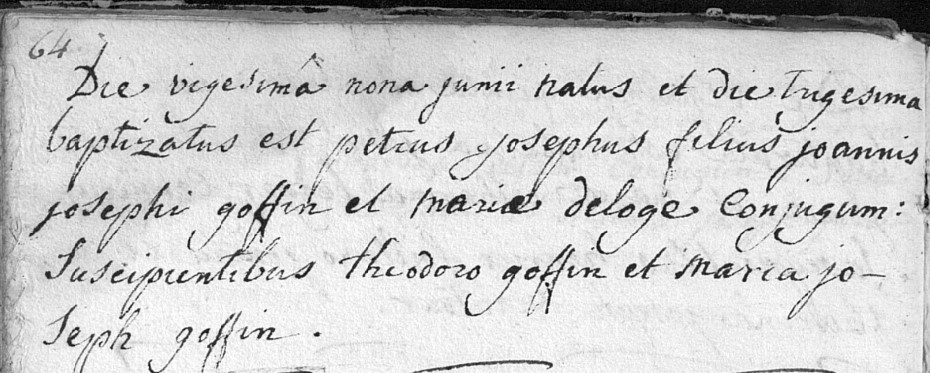 64
Die vigesimâ nona junii natus et die trigesima
baptizatus est petrus josephus filius joannis
josephi goffin et mariæ deloge Conjugum:
Suscipientibus theodoro goffin et maria jo-
seph goffin.